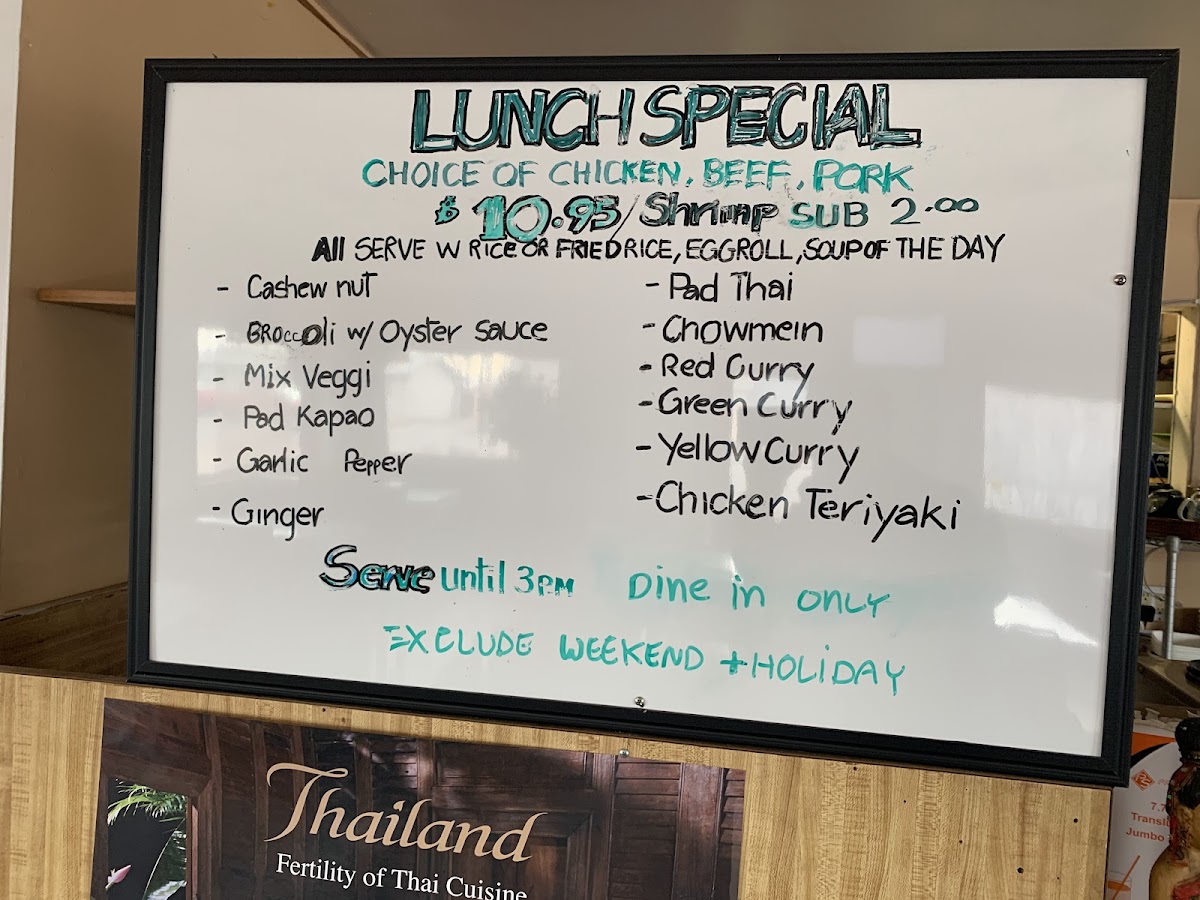 LUNCH SPECIAL
CHOICE OF CHICKEN, BEEF, PORK
$10.95/Shrimp SUB 2.00
All SERVE W RICE OR FRIED RICE, EGGROLL, SOUP OF THE DAY
- Cashew nut
- BROccoli w/ Oyster Sauce
- Mix Veggi
- Pad Kapao
- Garlic Pepper
- Ginger
- Pad Thai
- Chowmein
- Red Curry
- Green Curry
- Yellow Curry
- Chicken Teriyaki
Serve until 3PM Dine in ONLY
EXCLUDE WEEKEND + HOLIDAY
Thailand
Fertility of Thai Cuisine
7.7
Jumbo